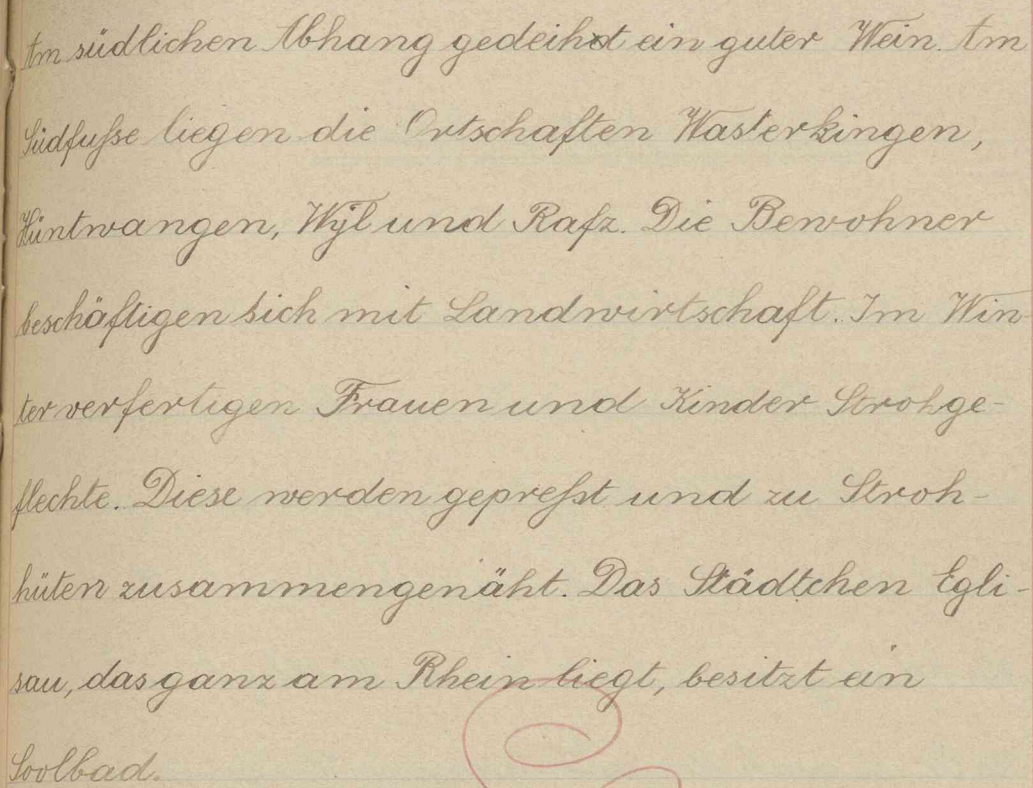 Am südlichen Abhang gedeiht ein guter Wein. Am
Südfusse liegen die Ortschaften Wasterkingen,
Hüntwangen, Wyl und Rafz. Die Bewohner
beschäftigen sich mit Landwirtschaft. Im Win-
ter verfertigen Frauen und Kinder Strohge-
flechte. Diese werden gepresst und zu Stroh-
hüten zusammengenäht. Das Städtchen Egli-
sau, das ganz am Rhein liegt, besitzt ein
Soolbad.